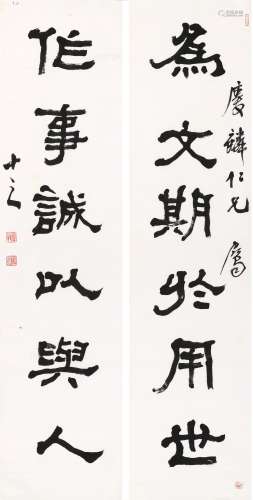 為文期於用世
慶麟仁兄屬
作事誠以與人